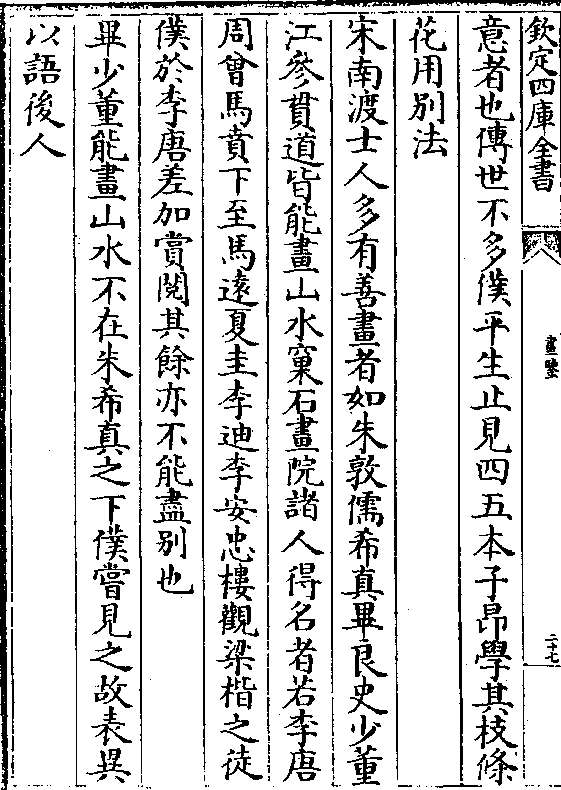 欽定四庫全書
畫鑒
二十七
意者也傳世不多僕平生止見四五本子昂學其枝條
花用別法
宋南渡士人多有善畫者如朱敦儒希真畢良史少董
江參貫道皆能畫山水窠石畫院諸人得名者若李唐
周曾馬賁下至馬遠夏圭李迪李安忠樓觀梁楷之徒
僕於李唐差加賞閱其餘亦不能盡別也
畢少董能畫山水不在朱希真之下僕嘗見之故表異
以語後人